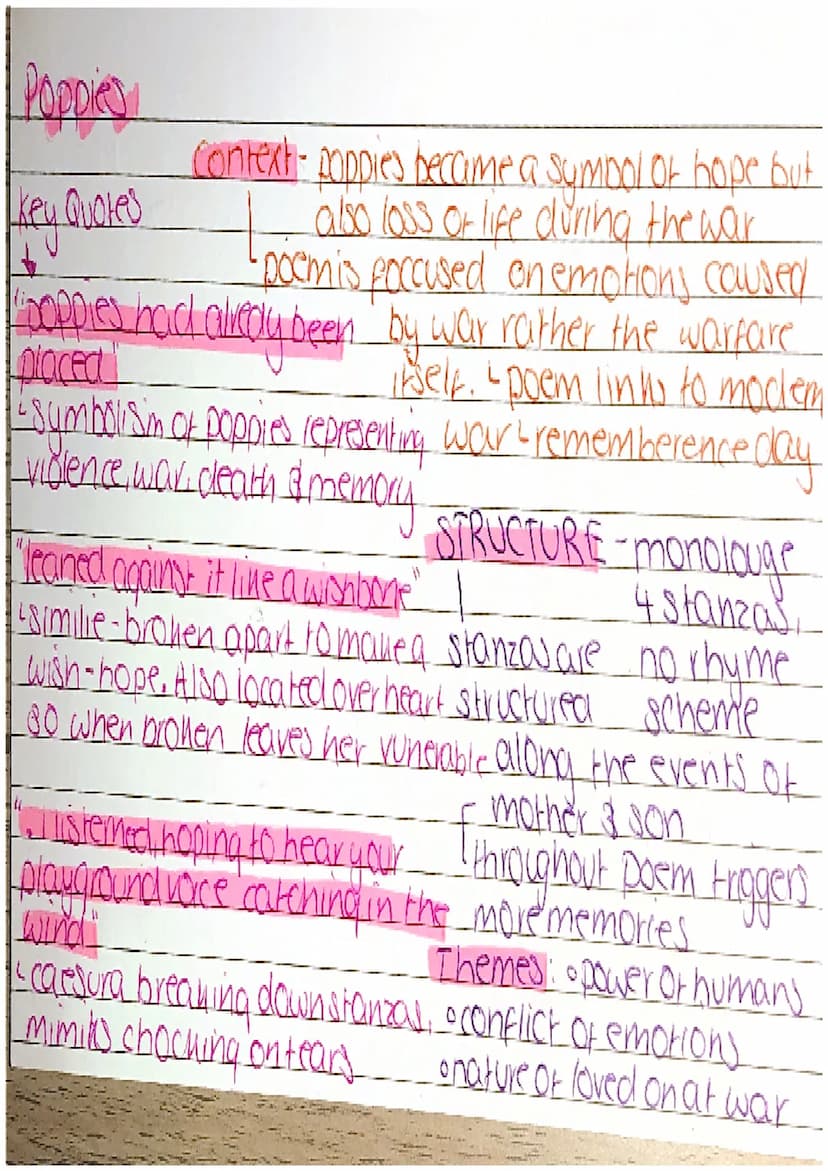 Poppies
Context - poppies became a symbol of hope but
also loss of life during the war
poem is foccused on emotions caused
by war rather the warfare
itself. ↳ poem links to modern
war ↳ rememberence day
Key Quotes
↓
"poppies had already been
placed"
↳ symbolism of poppies representing
violence, war, death & memory
"leaned against it like a wishbone"
↳ similie - broken apart to make a
wish - hope. Also located over heart
so when broken leaves her vunerable
". I listened, hoping to hear your
playground voice catching in the
wind"
↳ caesura breaking down stanzas,
mimiks chocking on tears
STRUCTURE - monolouge
4 stanzas,
no rhyme
scheme
stanzas are
structured
along the events of
mother & son
throughout poem triggers
more memories
Themes: ∘ power of humans
∘ conflict of emotions
∘ nature of loved on at war